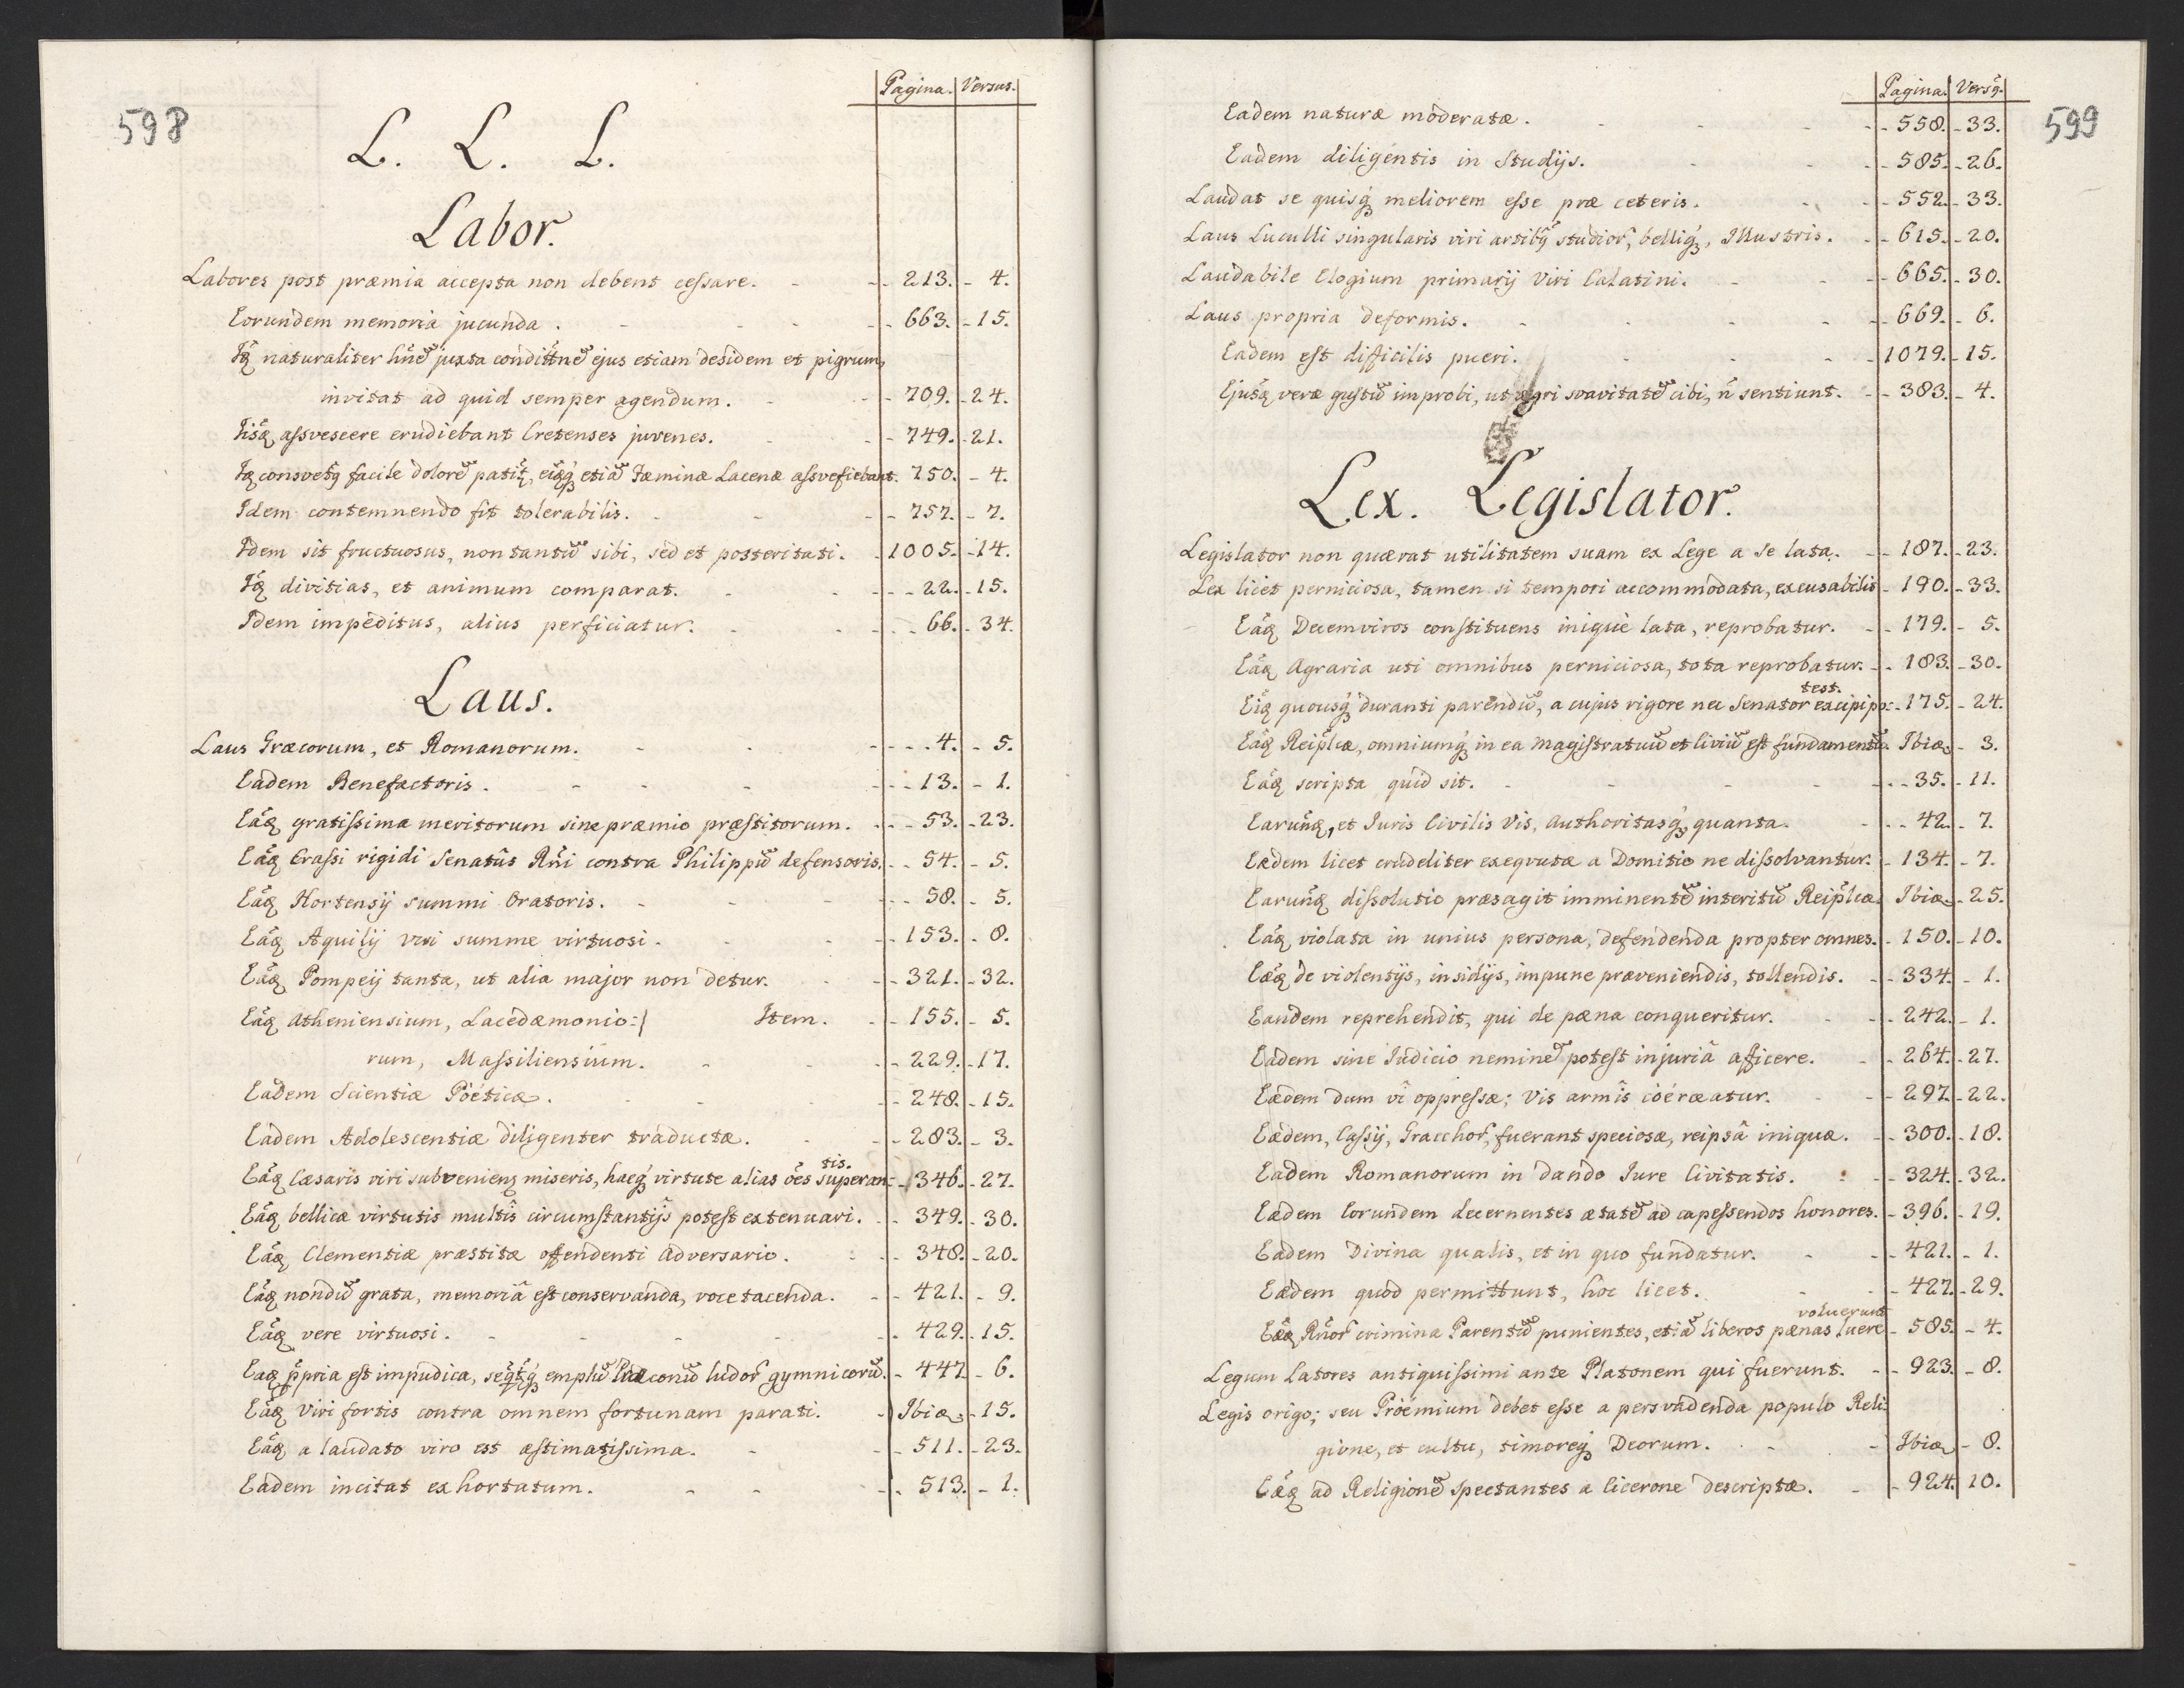 598
Pagina. Versus.
L. L. L.
Labor.
Labores post præmia accepta non debent cessare. - - 213. - 4.
Eorundem memoria jucunda. - - 663. - 15.
naturaliter juxta ejus etiam desidem et pigrum,
invitat ad quid semper agendum. - - 709. - 24.
assvescere erudiebant Cretenses juvenes. - - 749. - 21.
facile dolorē etiā Fæminæ Lacenæ assvefiebant. 750. - 4.
Idem contemnendo fit tolerabilis. - - 757. - 7.
Idem sit fructuosus, non tantū sibi, sed et posteritati. - 1005. - 14.
divitias, et animum comparat. - - 22. - 15.
Idem impeditus, alius perficiatur. - - 66. - 34.
Laus.
Laus Græcorum, et Romanorum. - - 4. - 5.
Eadem Benefactoris. - - 13. - 1.
Eaq gratissima meritorum sine præmio præstitorum. - - 53. - 23.
Eaq Crassi rigidi Senatûs Rñi contra Philippū defensoris. - - 54. - 5.
Eaq Hortensij summi Oratoris. - - 58. - 5.
Eaq Aquilij viri summe virtuosi. - - 153. - 8.
Eaq Pompeij tanta, ut alia major non detur. - - 321. - 32.
Eaq Atheniensium, Lacedæmonio:/ Item. - - 155. - 5.
rum, Massiliensium. - - 229. - 17.
Eadem Scientiæ Pöéticæ. - - 248. - 15.
Eadem Adolescentiæ diligenter traductæ. - - 283. - 3.
tis.
Eaq Cæsaris viri subveniens miseris, hacq virtute alias oēs superan: - 346. - 27.
Eaq bellicæ virtutis multîs circumstantijs potest extenuari. - - 349. - 30.
Eaq Clementiæ præstitæ offendenti Adversario. - - 348. - 20.
Eaq nondū grata, memoriâ est conservanda, voce tacenda. - - 421. - 9.
Eaq vere virtuosi. - - 429. - 15.
Eaq ppria est impudica, ludor gymnicorū. - 447. - 6.
Eaq Viri fortis contra omnem fortunam parati. - Ibiq - 15.
Eaq a laudato viro est æstimatissima. - - 511. - 23.
Eadem incitat exhortatum. - - 513. - 1.
Pagina. Versq.
599
Eadem naturæ moderatæ. - - 558. - 33.
Eadem diligentis in Studijs. - - 585. - 26.
Laudat se quisq meliorem esse præ ceteris. - - 552. - 33.
Laus Luculli singularis viri artibq studior, belliq, Illustris. - - 615. - 20.
Laudabile Elogium primarij Viri Calatini. - - 665. - 30.
Laus propria deformis. - - 669. - 6.
Eadem est difficilis pueri. - - 1079. - 15.
Ejusq veræ gustū improbi, ut ægri svavitatē cibi, ñ sentiunt. - - 383. - 4.
Lex. Legislator.
Legislator non quærat utilitatem suam ex Lege a se lata. - - 187. - 23.
Lex licet perniciosa, tamen si tempori accommodata, excusabilis - 190. - 33.
Eaq Decemviros constituens iniquè lata, reprobatur. - - 179. - 5.
Eaq Agraria uti omnibus perniciosa, tota reprobatur. - - 183. - 30.
test.
Eiq quousq duranti parendū, a cujus rigore nec Senator excipi po: - 175. - 24.
Eaq Reiplcæ, omniumq in ea Magistratuū et Civiū est fundamentū. Ibiq - 3.
Eaq scripta quid sit. - - 35. - 11.
Earunq, et Iuris Civilis Vis, Authoritasq, quanta. - - 42. - 7.
Eædem licet crudeliter exeqvutæ a Domitio ne dissolvantur. - 134. - 7.
Earunq dissolutio præsagit imminentē interitū Reiplcæ. Ibiq - 25.
Eaq violata in unius persona, defendenda propter omnes. - 150. - 10.
Eæq de violentijs, insidijs, impune præveniendis, tollendis. - - 334. - 1.
Eandem reprehendit, qui de pæna conqueritur. - - 242. - 1.
Eadem sine Iudicio neminē potest injuriâ afficere. - - 264. - 27.
Eædem dum vi oppressæ; Vis armîs cöérceatur. - - 297. - 22.
Eædem, Cassij, Gracchor, fuerant speciosæ, reipsâ iniquæ. - - 300. - 18.
Eadem Romanorum in dando Iure Civitatis. - - 324. - 32.
Eædem Eorundem decernentes ætatē ad capessendos honores. - 396. - 19.
Eadem Divina qualis, et in quo fundatur. - - 421. - 1.
Eædem quod permittunt, hoc licet. - - 427. - 29.
voluerunt
Eæq Rñor crimina Parentū punientes, etiā liberos pænas luere - 585. - 4.
Legum Latores antiquissimi ante Platonem qui fuerunt. - - 923. - 8.
Legis origo; seu Pröémium debet esse a persvadenda populo Reli:
gione, et cultu, timoreq Deorum. - - Ibiq - 8.
Eæq ad Religionē spectantes a Cicerone descriptæ. - - 924. 10.